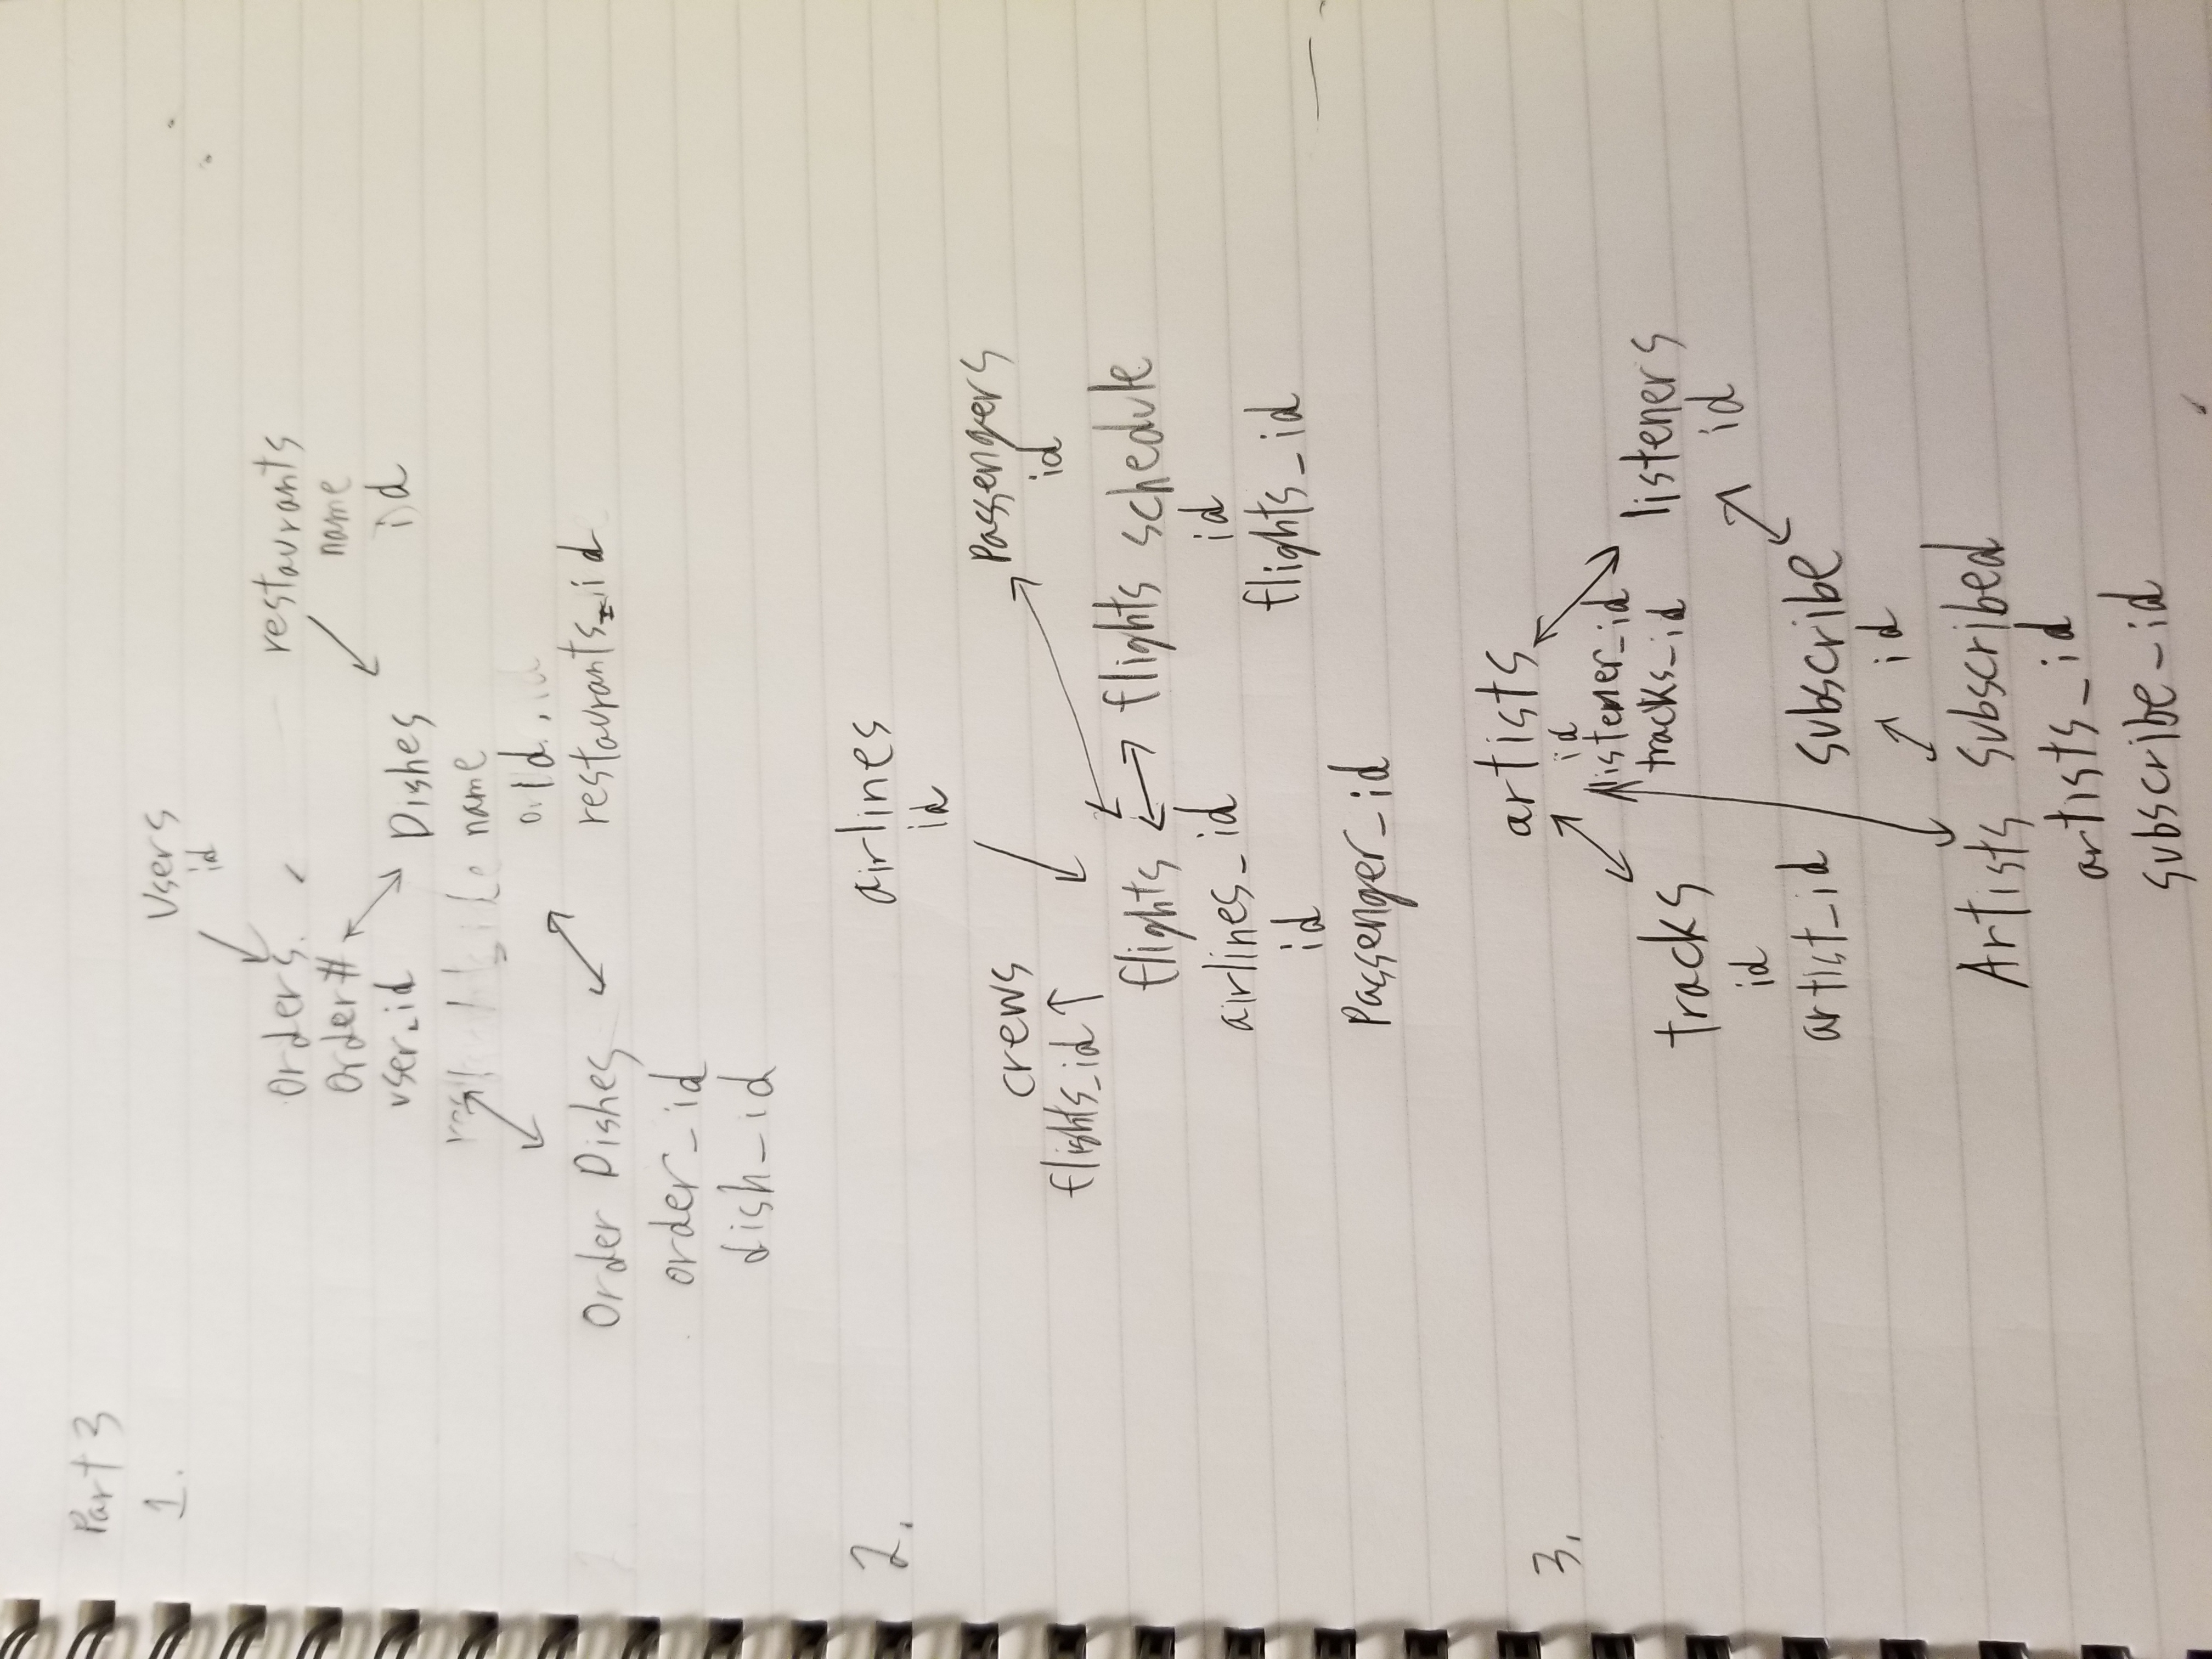 Part 3
1.
Users
id
Orders.
Order#
user_id
restaurants
name
id
Dishes
name
id
restaurants_id
Order Dishes
order_id
dish_id
2.
airlines
id
crews
flights_id
Passengers
id
flights
airlines_id
id
Passenger_id
flights schedule
id
flights_id
3.
artists
id
listener_id
tracks_id
tracks
id
artist_id
listeners
id
subscribe
id
Artists subscribed
artists_id
subscribe_id